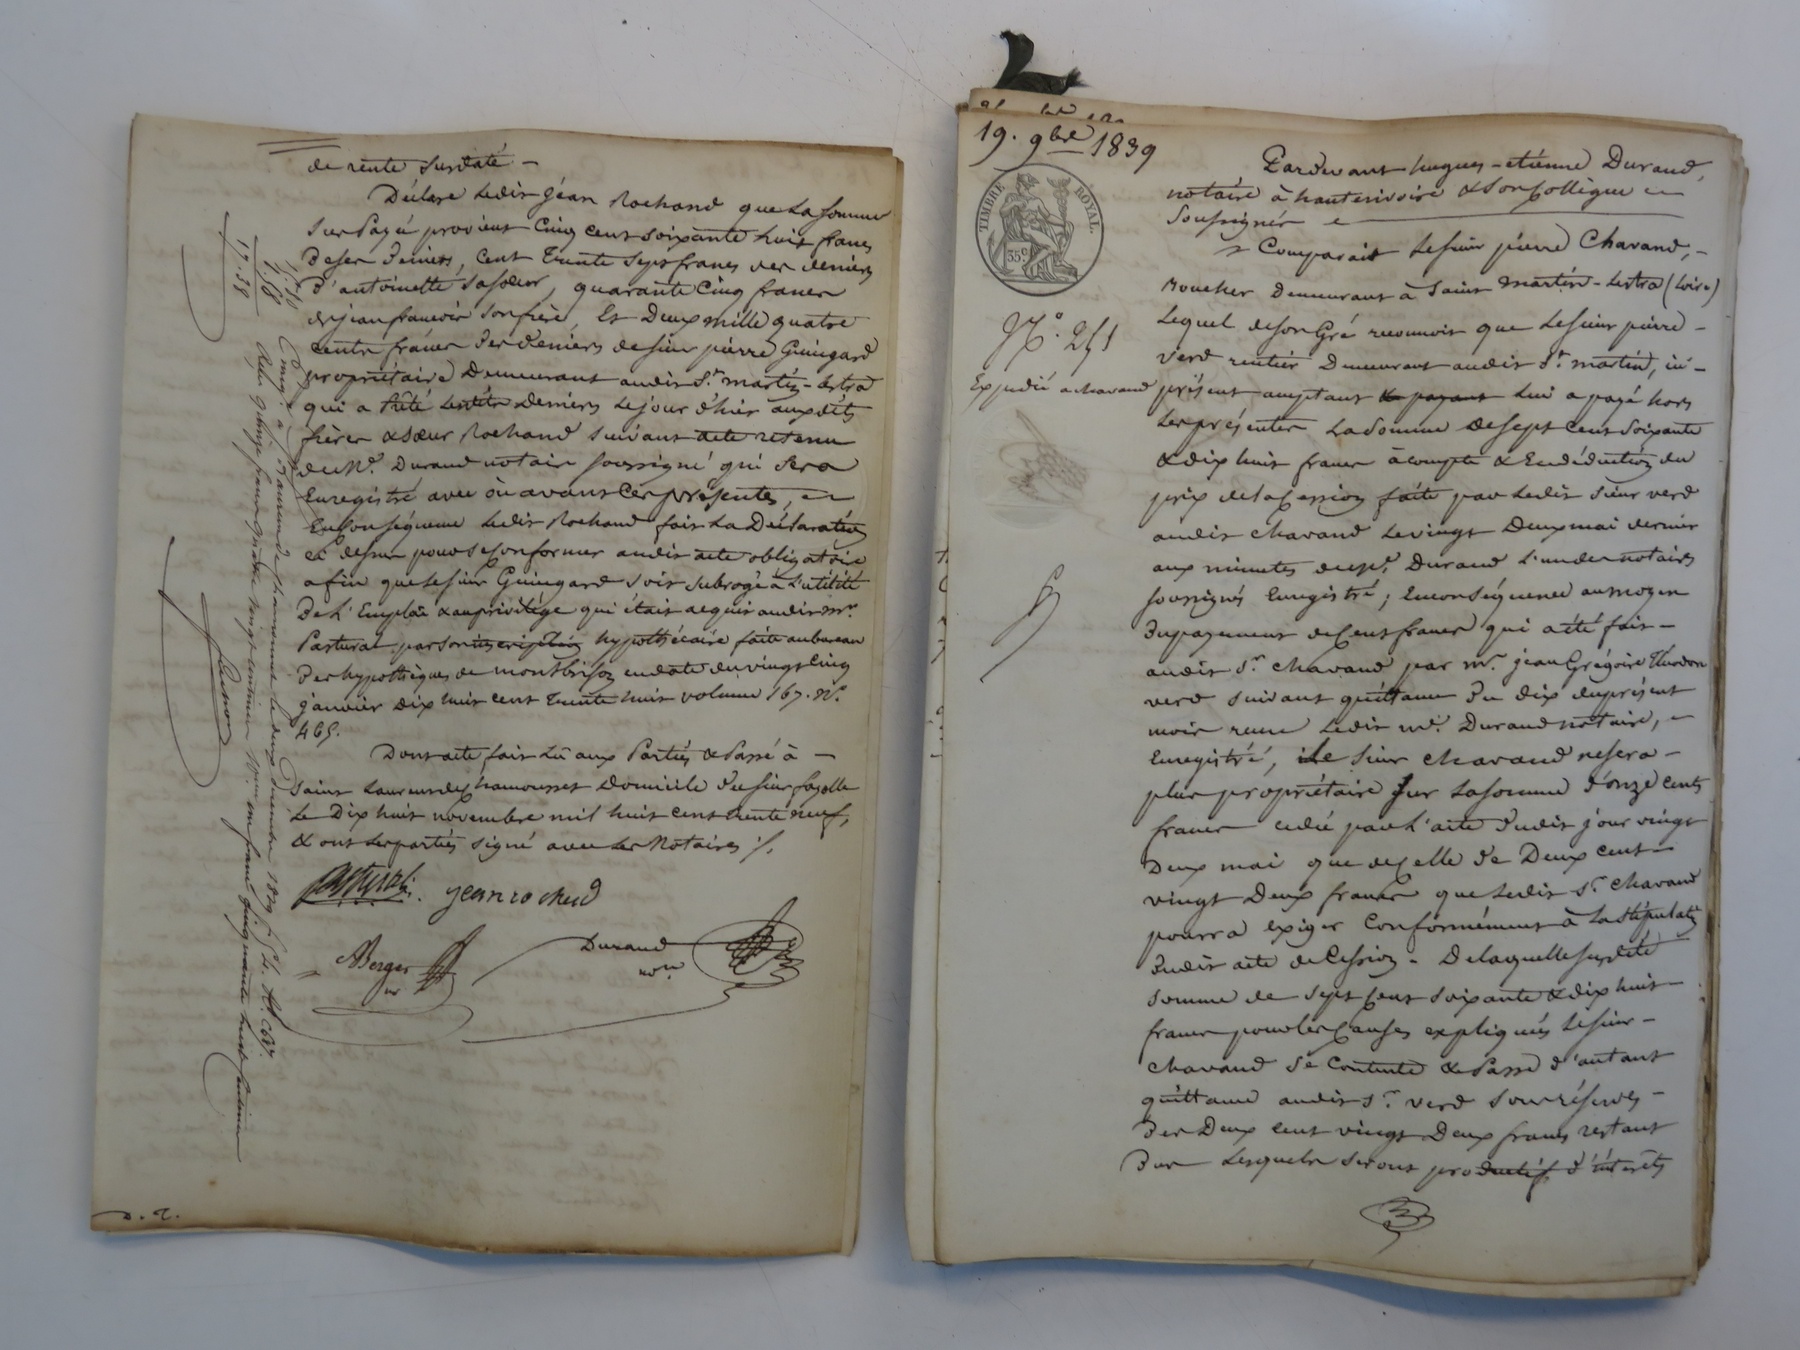 de rente susdaté -
Déclare ledit jéan Rochand que la somme
sus payé provient Cinq cent soixante huit francs
de ses deniers, cent trente sept francs des deniers
d'antoinette sa sœur, quarante Cinq francs
de jean francois son frère, Et Deux mille quatre
cents francs des deniers de sieur pièrre Guingard
propriétaire Demeurant audit St. martin-lestra
qui a Prété lesdits Deniers le jour d'hier auxdits
frères & sœur Rochand suivant acte retenu
du Me. Durand notaire soussigné qui sera
Enregistré avec ou avant Ces présentes,
En Conséquence ledit Rochand fait la Déclaration
ci dessus pour se Conformer audit acte obligatoire
afin que le sieur Guingard soit subrogé à l'utilité
De l'Emploi & au privilége qui était acquis audit mr.
Pastural par son inscription hypothécaire faite au bureau
Des hypothèques de montbrison en date du vingt Cinq
janvier dix huit cent trente huit volume 167. No.
465.
Dont acte fait Lû aux Partiés & Passé à -
Saint Laurent de Chamousset Domicile du sieur fayolle
Le Dix huit novembre mil huit cent trente neuf,
& ont les parties signé avec les Notaires ./.
Pastural. jean rochand
Berger nre
Durand nore.
15.80
1.58
17.38
Enregistré à St Laurent de chamousset le deux Decembre 1839 fo
Reçu quinze francs quatre vingt centimes 10me un franc cinquante huit centimes
D. R.
19. 9bre 1839
TIMBRE ROYAL
35c
No. 251
Expédié à chavand
Pardevant hugues-etiénne Durand,
notaire à hauterivoire & Son Collègue
Soussignés
Comparait Le sieur piérre Chavand, -
Boucher Demeurant à Saint martin-Lestra (Loire)
Lequel de son Gré reconnoit que le sieur piérre -
verd rentier Demeurant audit St. martin, ici -
présent acceptant lui a payé hors
les présentes La Somme de sept Cent Soixante
& dix huit francs à compte & En déduction du
prix de la Cession faite par ledit sieur verd
audit chavand le vingt Deux mai dernier
aux minutes du Me. Durand l'un des notaires
soussignés Enregistré ; En conséquence au moyen
du payement de Cent francs qui a été fait -
audit Sr. chavand par mr. jean Grégoire
verd suivant quittance du dix du présent
mois reçue ledit Me. Durand notaire, -
Enregistré, le sieur chavand ne sera -
plus propriétaire sur la somme d'onze cents
francs cédée par l'acte dudit jour vingt
Deux mai que de Celle de Deux cent -
vingt Deux francs que ledit Sr. chavand
pourra Exiger Conformément à la stipulation
dudit acte de Cession. - De laquelle susdite
somme de sept Cent soixante & dix huit -
francs pour les Causes expliquées le sieur -
chavand se Contente & Passe d'autant
quittance audit Sr. verd sous réserves -
des Deux cent vingt Deux francs restant
Dus lesquels seront productifs d'intérêts